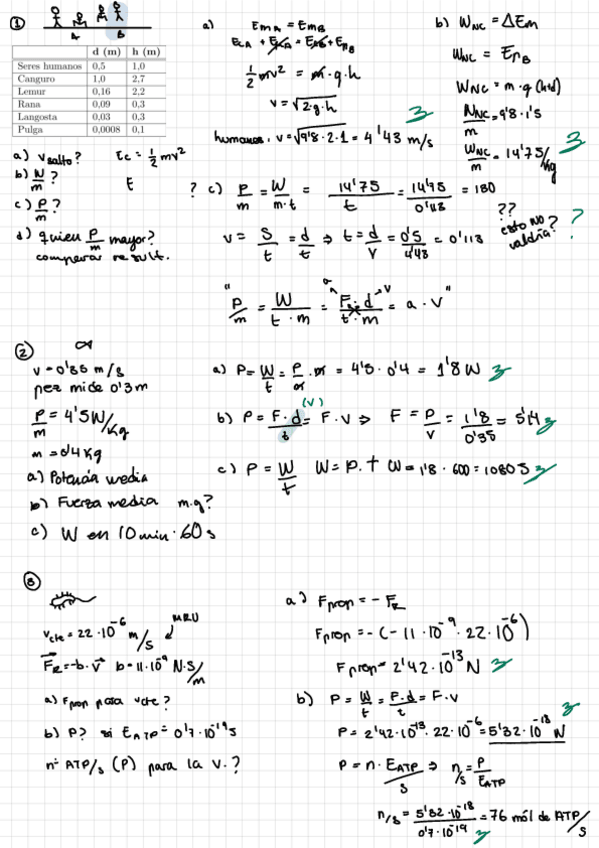 ①
A B
d (m) h (m)
Seres humanos 0,5 1,0
Canguro 1,0 2,7
Lemur 0,16 2,2
Rana 0,09 0,3
Langosta 0,03 0,3
Pulga 0,0008 0,1
a) v salto? Ec = 1/2 mv²
b) W/m? E
c) P/m?
d) quien P/m mayor?
comparar result.
a) EmA = EmB
EcA + EpA = EcB + EpB
1/2 mv² = m · g · h
v = √2·g·h
humanos: v = √9'8·2·1 = 4'43 m/s
b) WNC = ΔEm
WNC = EpB
WNC = m·g (h+d)
WNC/m = 9'8·1'5
WNC/m = 14'75/kg
? c) P/m = W/m·t = 14'75/t = 14'75/0'113 = 130
v = S/t = d/t ⇒ t = d/v = 0'5/4'43 = 0'113
??
esto no
valdría? ?
"P/m = W/t·m = F·d/t·m = a·v"
a v
②
v = 0'35 m/s
pez mide 0'3m
P/m = 4'5W/kg
m = 0'4 kg
a) Potencia media
b) Fuerza media m·g?
c) W en 10 min · 60 s
a) P = W/t = P/m · m = 4'5 · 0'4 = 1'8 W
b) P = F·d/t = F·v ⇒ F = P/v = 1'8/0'35 = 5'14
(v)
c) P = W/t W = P·t W = 1'8 · 600 = 1080 J
③
vcte = 22·10⁻⁶ m/s MRU
FR = -b·v b = 11·10⁻⁹ N·s/m
a) Fprop para vcte?
b) P? si EATP = 0'7·10⁻¹⁹ J
nº ATP/s (P) para la v.?
a) Fprop = - FR
Fprop = -(-11·10⁻⁹ · 22·10⁻⁶)
Fprop = 2'42·10⁻¹³ N
b) P = W/t = F·d/t = F·v
P = 2'42·10⁻¹³ · 22·10⁻⁶ = 5'32·10⁻¹⁸ N
P = n · EATP/s ⇒ n/s = P/EATP
n/s = 5'32·10⁻¹⁸/0'7·10⁻¹⁹ = 76 mól de ATP/s